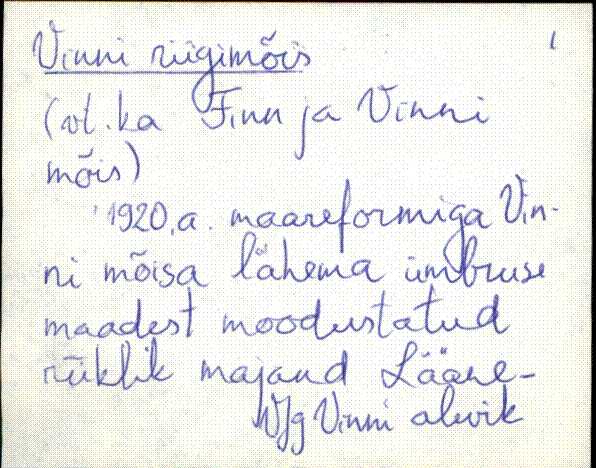 Vinni riigimõis 1
(vt. ka Finn ja Vinni
mõis)
1920. a. maareformiga Vin-
ni mõisa lähema ümbruse
maadest moodustatud
riiklik majand Lääne-
Vinni alevik